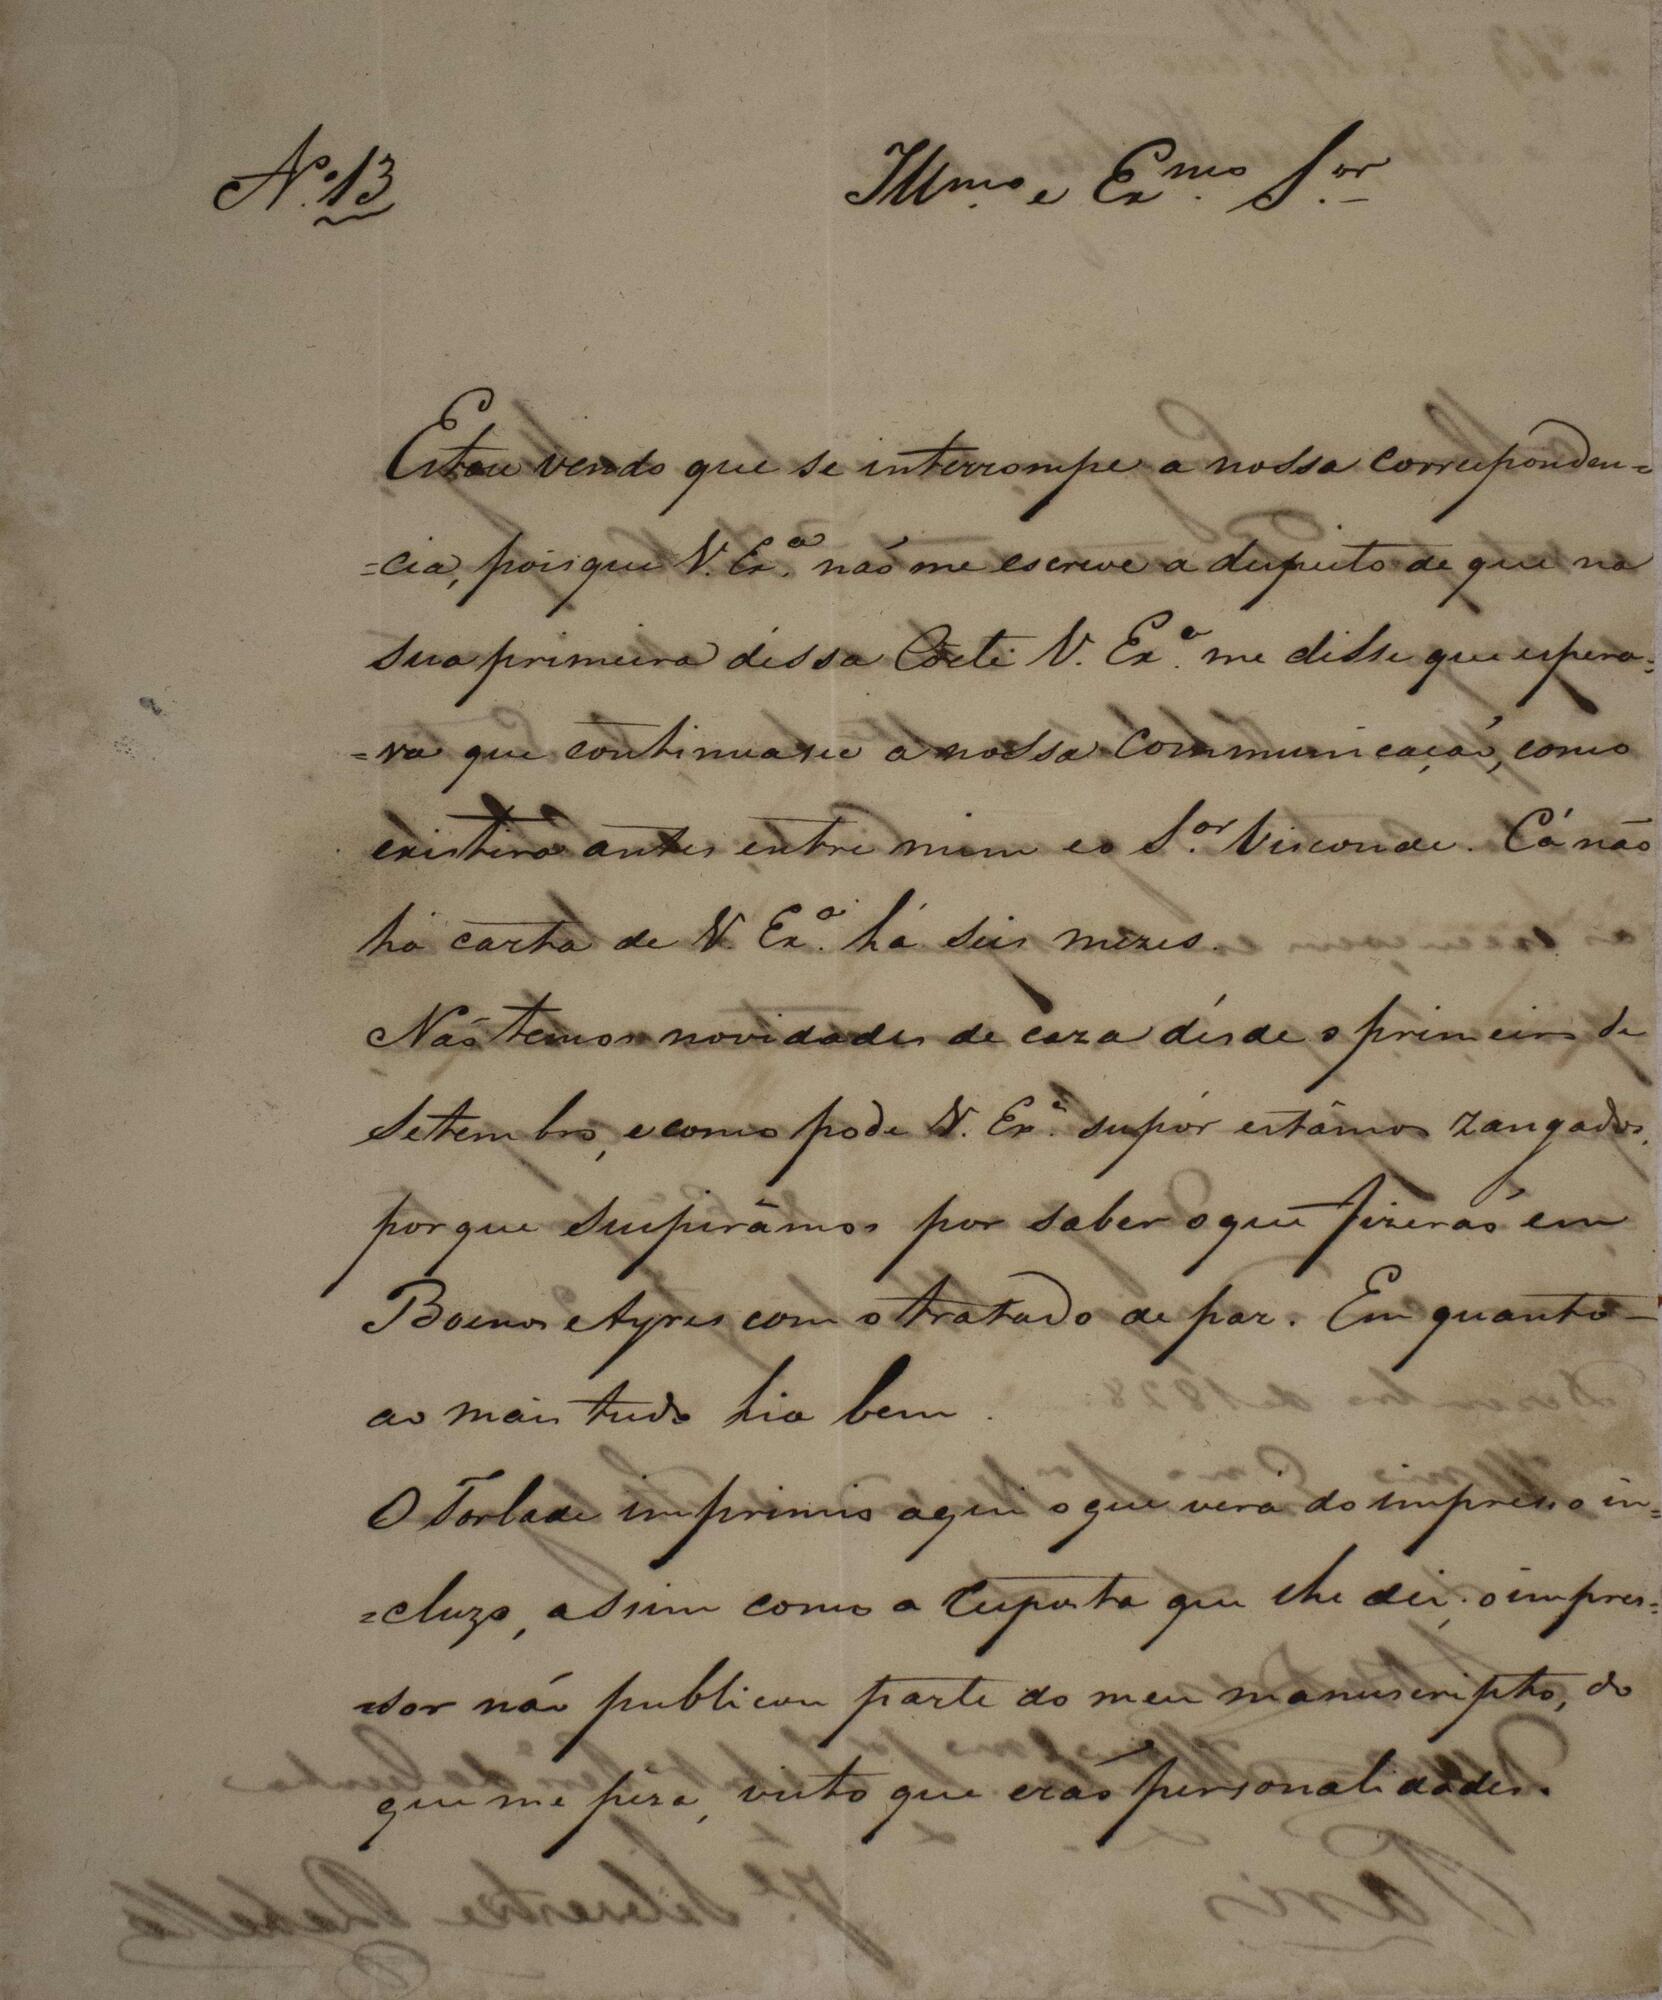 Nº. 13
Illmo. e Exmo. Sor.
Estou vendo que se interrompe a nossa corresponden=
=cia, pois que V. Exª. naõ me escreve a despeito de que na
sua primeira déssa Côrte V. Exª. me disse que espera=
=va que continuasse a nossa communicaçaõ, como
existira antes entre mim e o Sor. Visconde. Cá não
há carta de V. Exª. há seis mezes.
Naõ temos novidades de caza désde o primeiro de
Setembro, e como pode V. Exª. supôr estâmos zangados,
porque suspirâmos por saber o que fizeraõ em
Buenos Ayres com o tratado de paz. Em quanto
ao mais tudo hia bem.
O Torlade imprimio aqui o que verá do impresso in=
=cluzo, assim como a resposta que lhe dei; o impres=
=sor naõ publicou parte do meu manuscripto, do
que me péza, visto que eraõ personalidades.